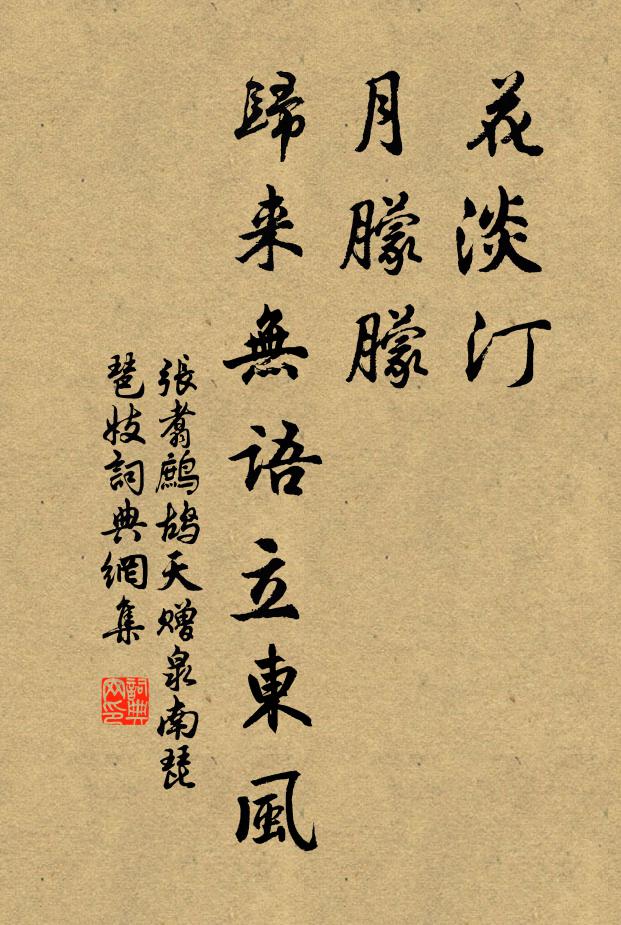 花淡汀
月朦朦
歸来無語立東風
張翥鷓鴣天贈泉南琵
琶妓詞典網集
詞典
网印